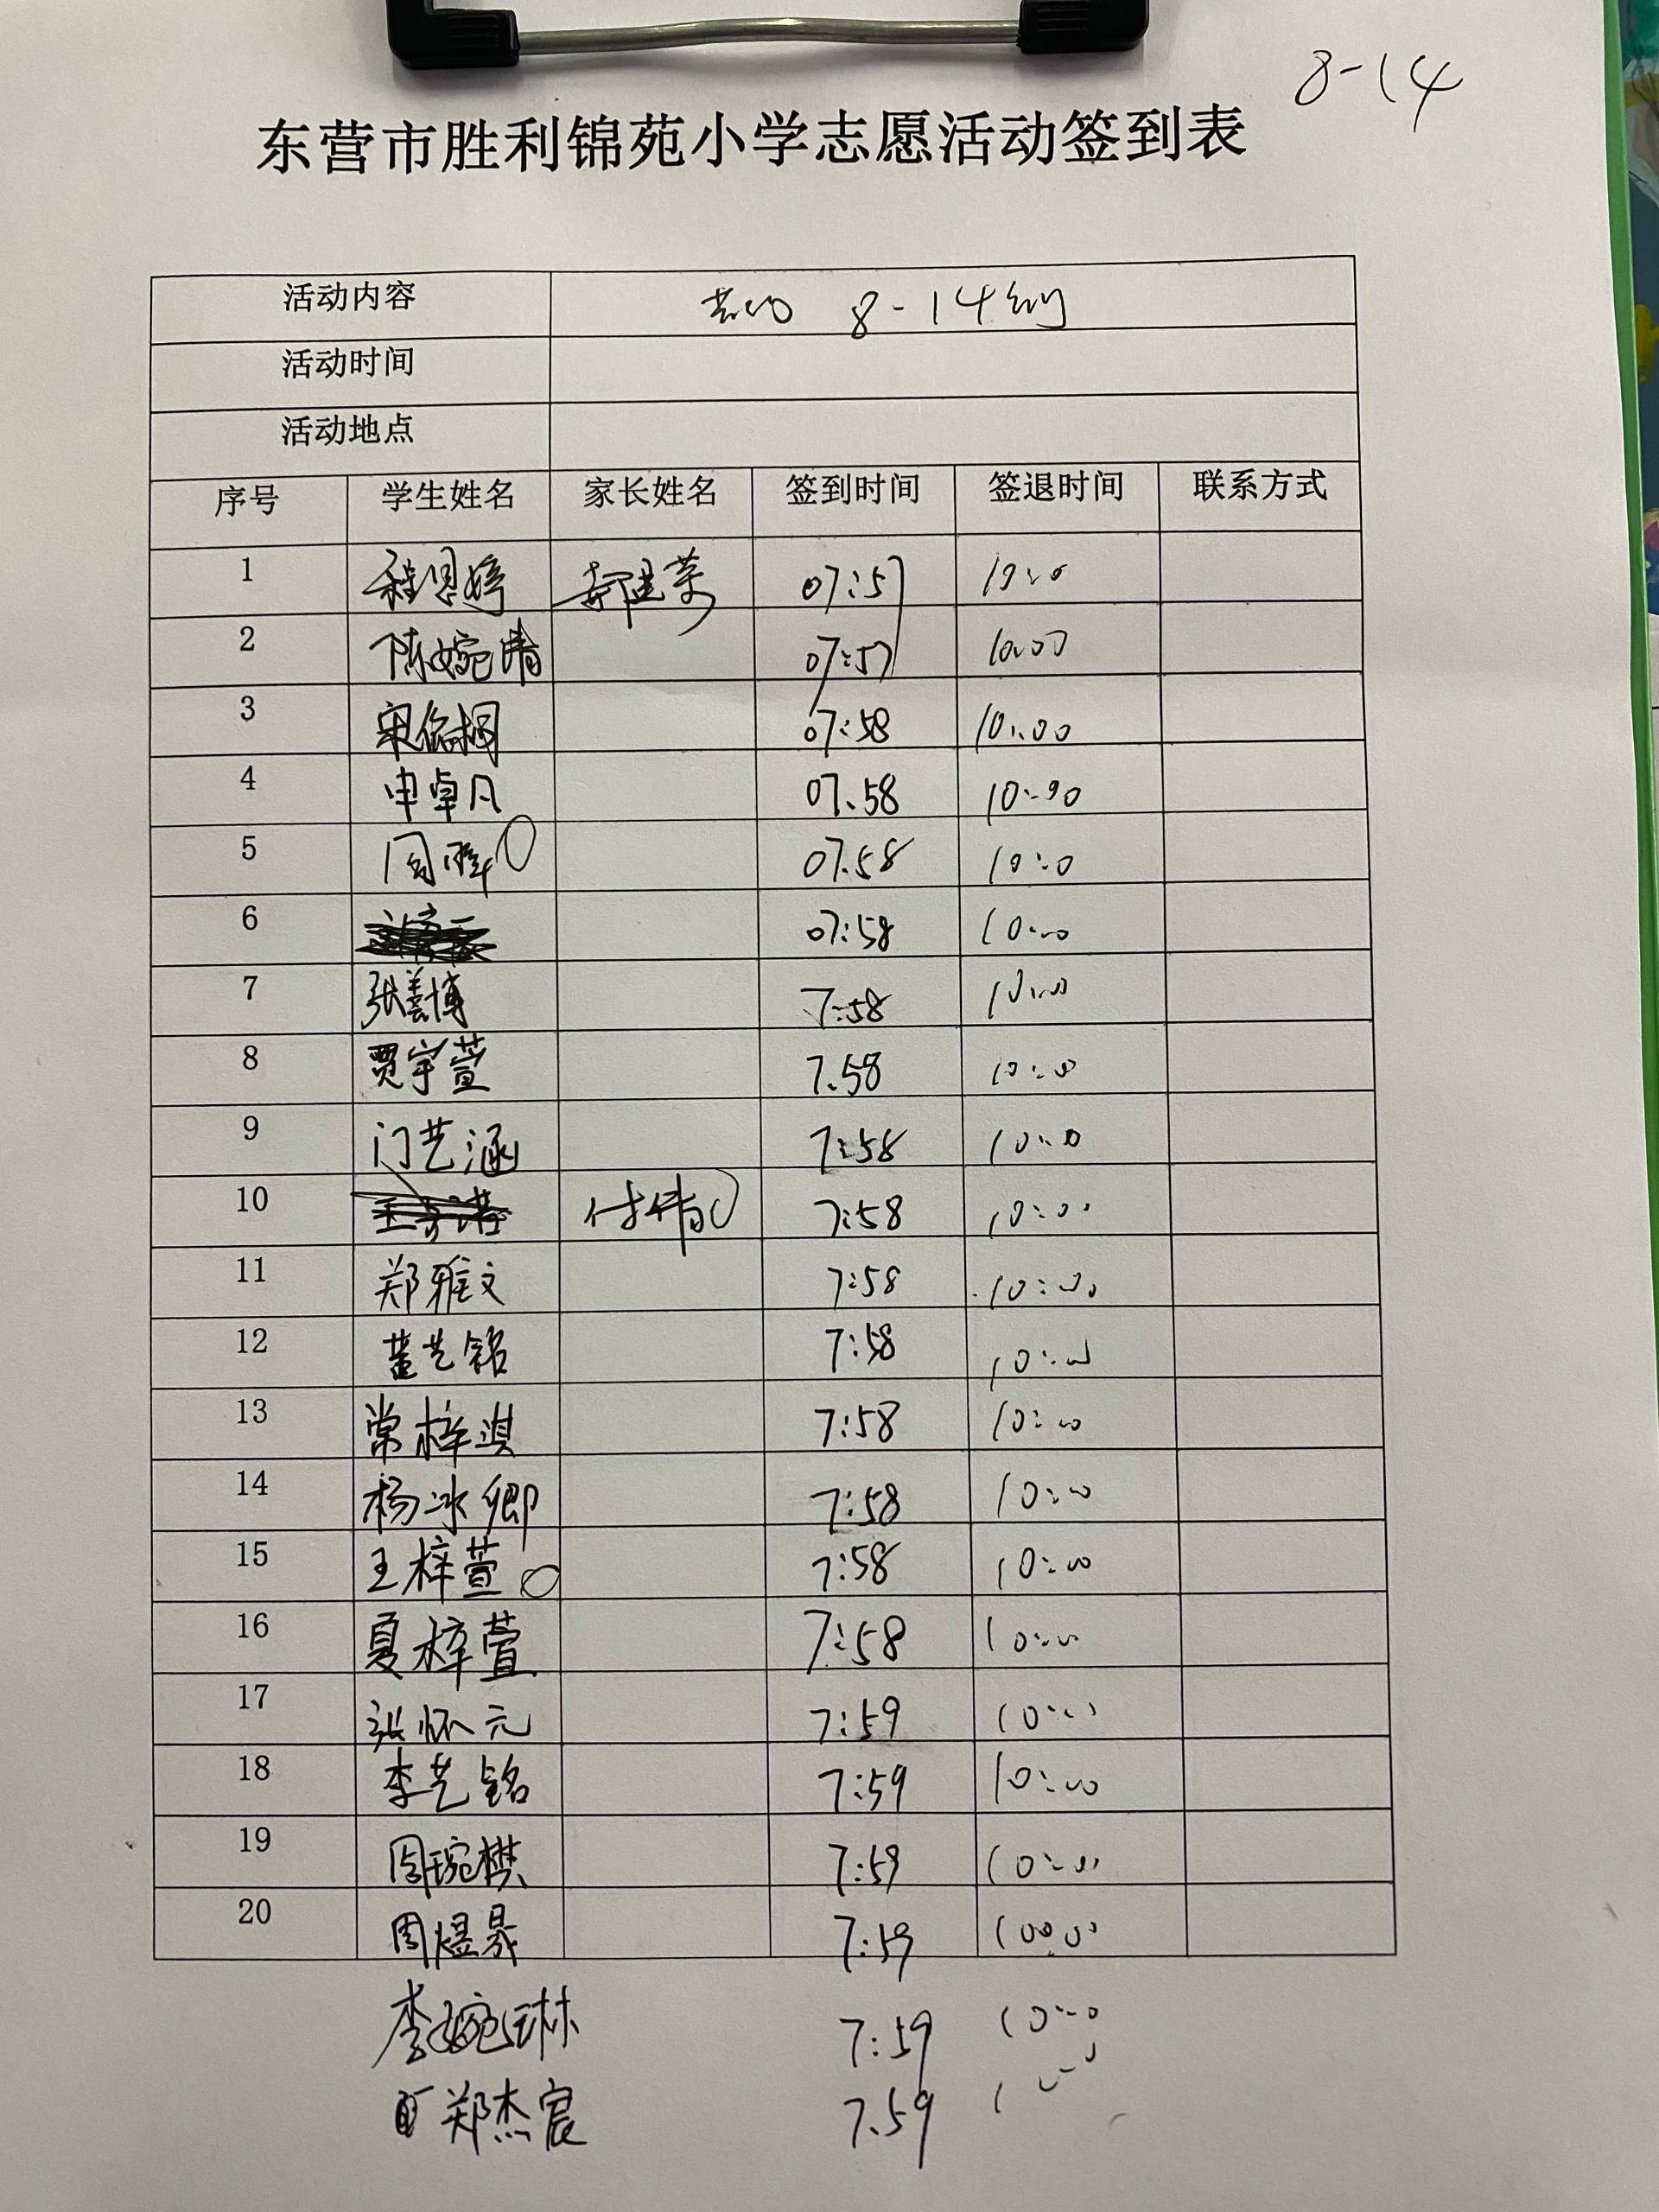 8-14
东营市胜利锦苑小学志愿活动签到表
活动内容 8-14
活动时间
活动地点
序号 学生姓名 家长姓名 签到时间 签退时间 联系方式
1 程思婷 07:57
2 陈婉晴 07:57 10:00
3 07:58 10:00
4 申卓凡 07.58 10:00
5 07.58 10:0
6 07:58 10:00
7 张善博 7:58 10:00
8 贾宇萱 7.58 10:0
9 门艺涵 7:58 10:0
10 7:58 10:00
11 郑雅文 7:58 10:00
12 董艺铭 7:58 10:00
13 常梓淇 7:58 10:00
14 杨冰卿 7:58 10:00
15 王梓萱 7:58 10:00
16 夏梓萱 7:58 10:00
17 张怀元 7:59 10:00
18 李艺铭 7:59 10:00
19 周琬樊 7:59 10:00
20 周煜晟 7:59
李婉琳 7:59 10:00
郑杰宸 7.59